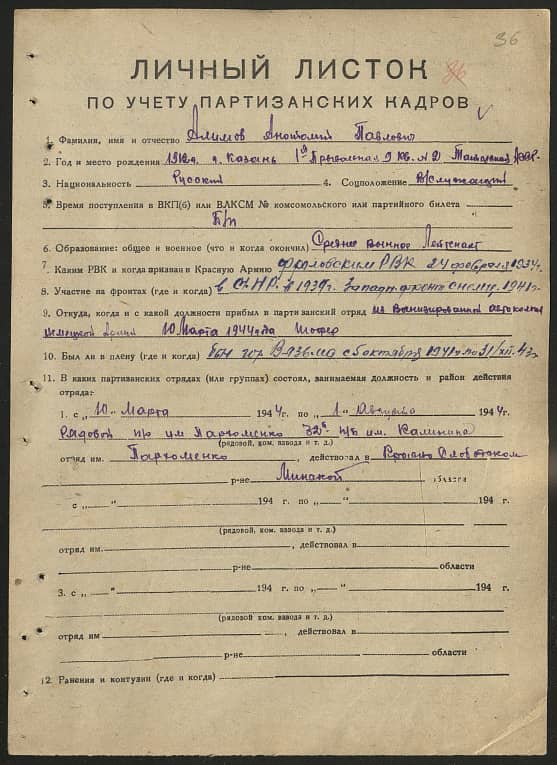 36
ЛИЧНЫЙ ЛИСТОК
ПО УЧЕТУ ПАРТИЗАНСКИХ КАДРОВ
1. Фамилия, имя и отчество Алимов Анатолий Павлович
2. Год и место рождения г. Казань
3. Национальность Русский 4. Соцположение В/служащий
5. Время поступления в ВКП(б) или ВЛКСМ № комсомольского или партийного билета
Б/п
6. Образование: общее и военное (что и когда окончил) Среднее военное Лейтенант
7. Каким РВК и когда призван в Красную Армию Фроловским РВК 24 февраля 1934г.
8. Участие на фронтах (где и когда) 1939г. Запад. 1941г.
9. Откуда, когда и с какой должности прибыл в партизанский отряд из
немецкой 10 Марта 1944 года Шофер
10. Был ли в плену (где и когда) был гор Вязьма с 5 октября 1941г. по 31/XII. 43г.
11. В каких партизанских отрядах (или группах) состоял, занимаемая должность и район действия
отряда:
1. с „10 Марта 1944 г. по „1" Августа 1944 г.
Рядовой п/о им Пархоменко им. Калинина
(рядовой, ком. взвода и т. д.)
отряд им. Пархоменко, действовал в Красно Слободском
р-не Минской области
с „ — " 194 г. по „ — " 194 г.
(рядовой, ком. взвода и т. д.)
отряд им. , действовал в
р-не области
3. с „ — " 194 г. по „ — " 194 г.
(рядовой, ком. взвода и т. д.)
отряд им , действовал в
р-не области
12. Ранения и контузии (где и когда)